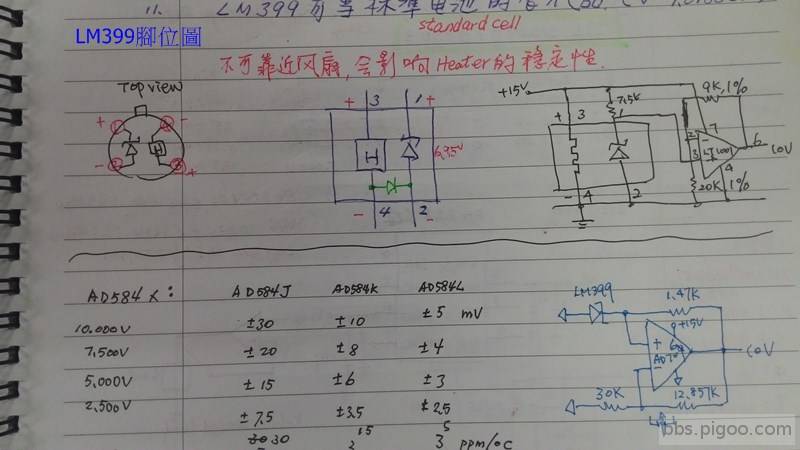 11. LM399可
standard cell
LM399腳位圖
不可靠近风扇,会影响Heater的稳定性.
Top view
+ -
- +
H
+ 3 1 +
H 6.95V
- 4 2 -
+15V
7.5K
9K, 1%
+ 3 1
2 7
- 6 10V
3 + 4
20K 1%
- 4 2
AD584X: AD584J AD584K AD584L
10.000V ±30 ±10 ±5 mV
7,500V ±20 ±8 ±4
5,000V ±15 ±6 ±3
2,500V ±7.5 ±3.5 ±2.5
30 15 5
3 ppm/oC
LM399 1.47K
+15V
+ 6
- 10V
30K 12.857K
bbs.pigoo.com